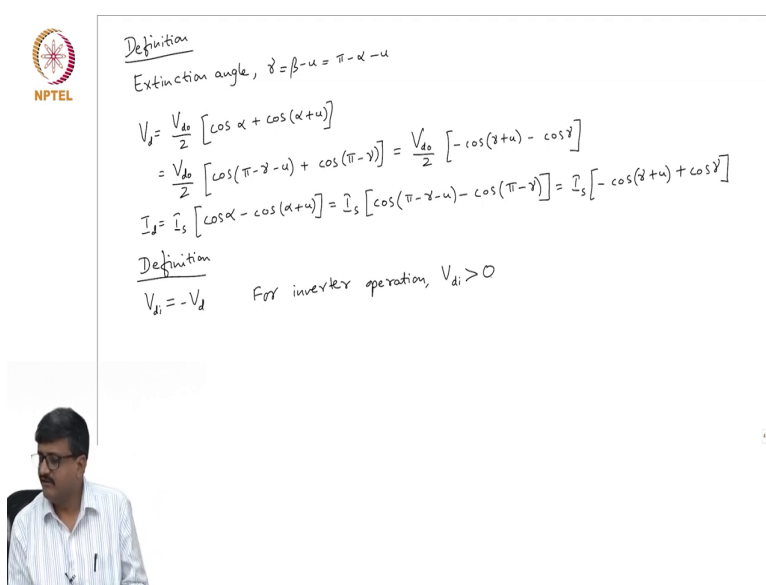 NPTEL
Definition
Extinction angle, γ = β - u = π - α - u
V_d = V_do/2 [cos α + cos(α+u)]
= V_do/2 [cos(π-γ-u) + cos(π-γ)] = V_do/2 [-cos(γ+u) - cosγ]
I_d = I_s [cosα - cos(α+u)] = I_s [cos(π-γ-u) - cos(π-γ)] = I_s [-cos(γ+u) + cosγ]
Definition
V_di = -V_d For inverter operation, V_di > 0